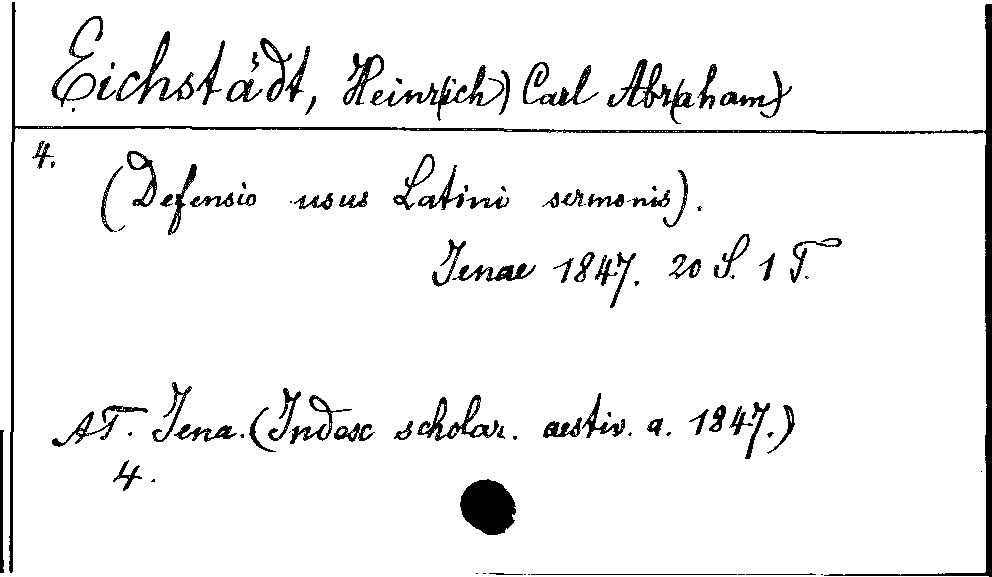 Eichstädt, Heinr(ich) Carl Abr(aham)
4.
(Defensio usus Latini sermonis).
Jenae 1847. 20 S. 1 T.
AT. Jena. (Index scholar. aestiv. a. 1847.)
4.